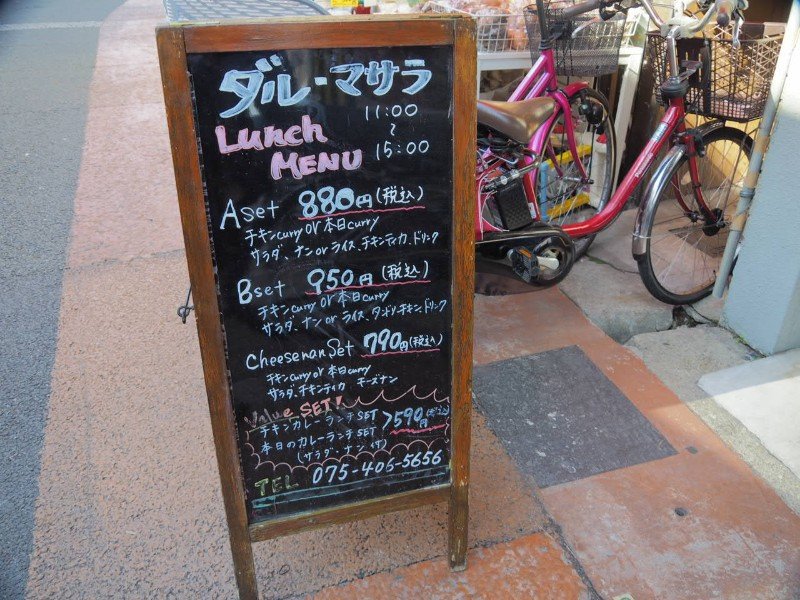 ダル・マサラ
Lunch
MENU
11:00
~
15:00
A set 880円(税込)
チキンcurry or 本日curry
サラダ、ナン or ライス、チキンティカ、ドリンク
B set 950円(税込)
チキンcurry or 本日curry
サラダ、ナン or ライス、タンドリチキン、ドリンク
Cheesenan Set 790円(税込)
チキンcurry or 本日curry
サラダ、チキンティカ モーズナン
Value SET!
チキンカレーランチSET
本日のカレーランチSET
>590円(税込)
(サラダ・ナン付)
TEL 075-406-5656